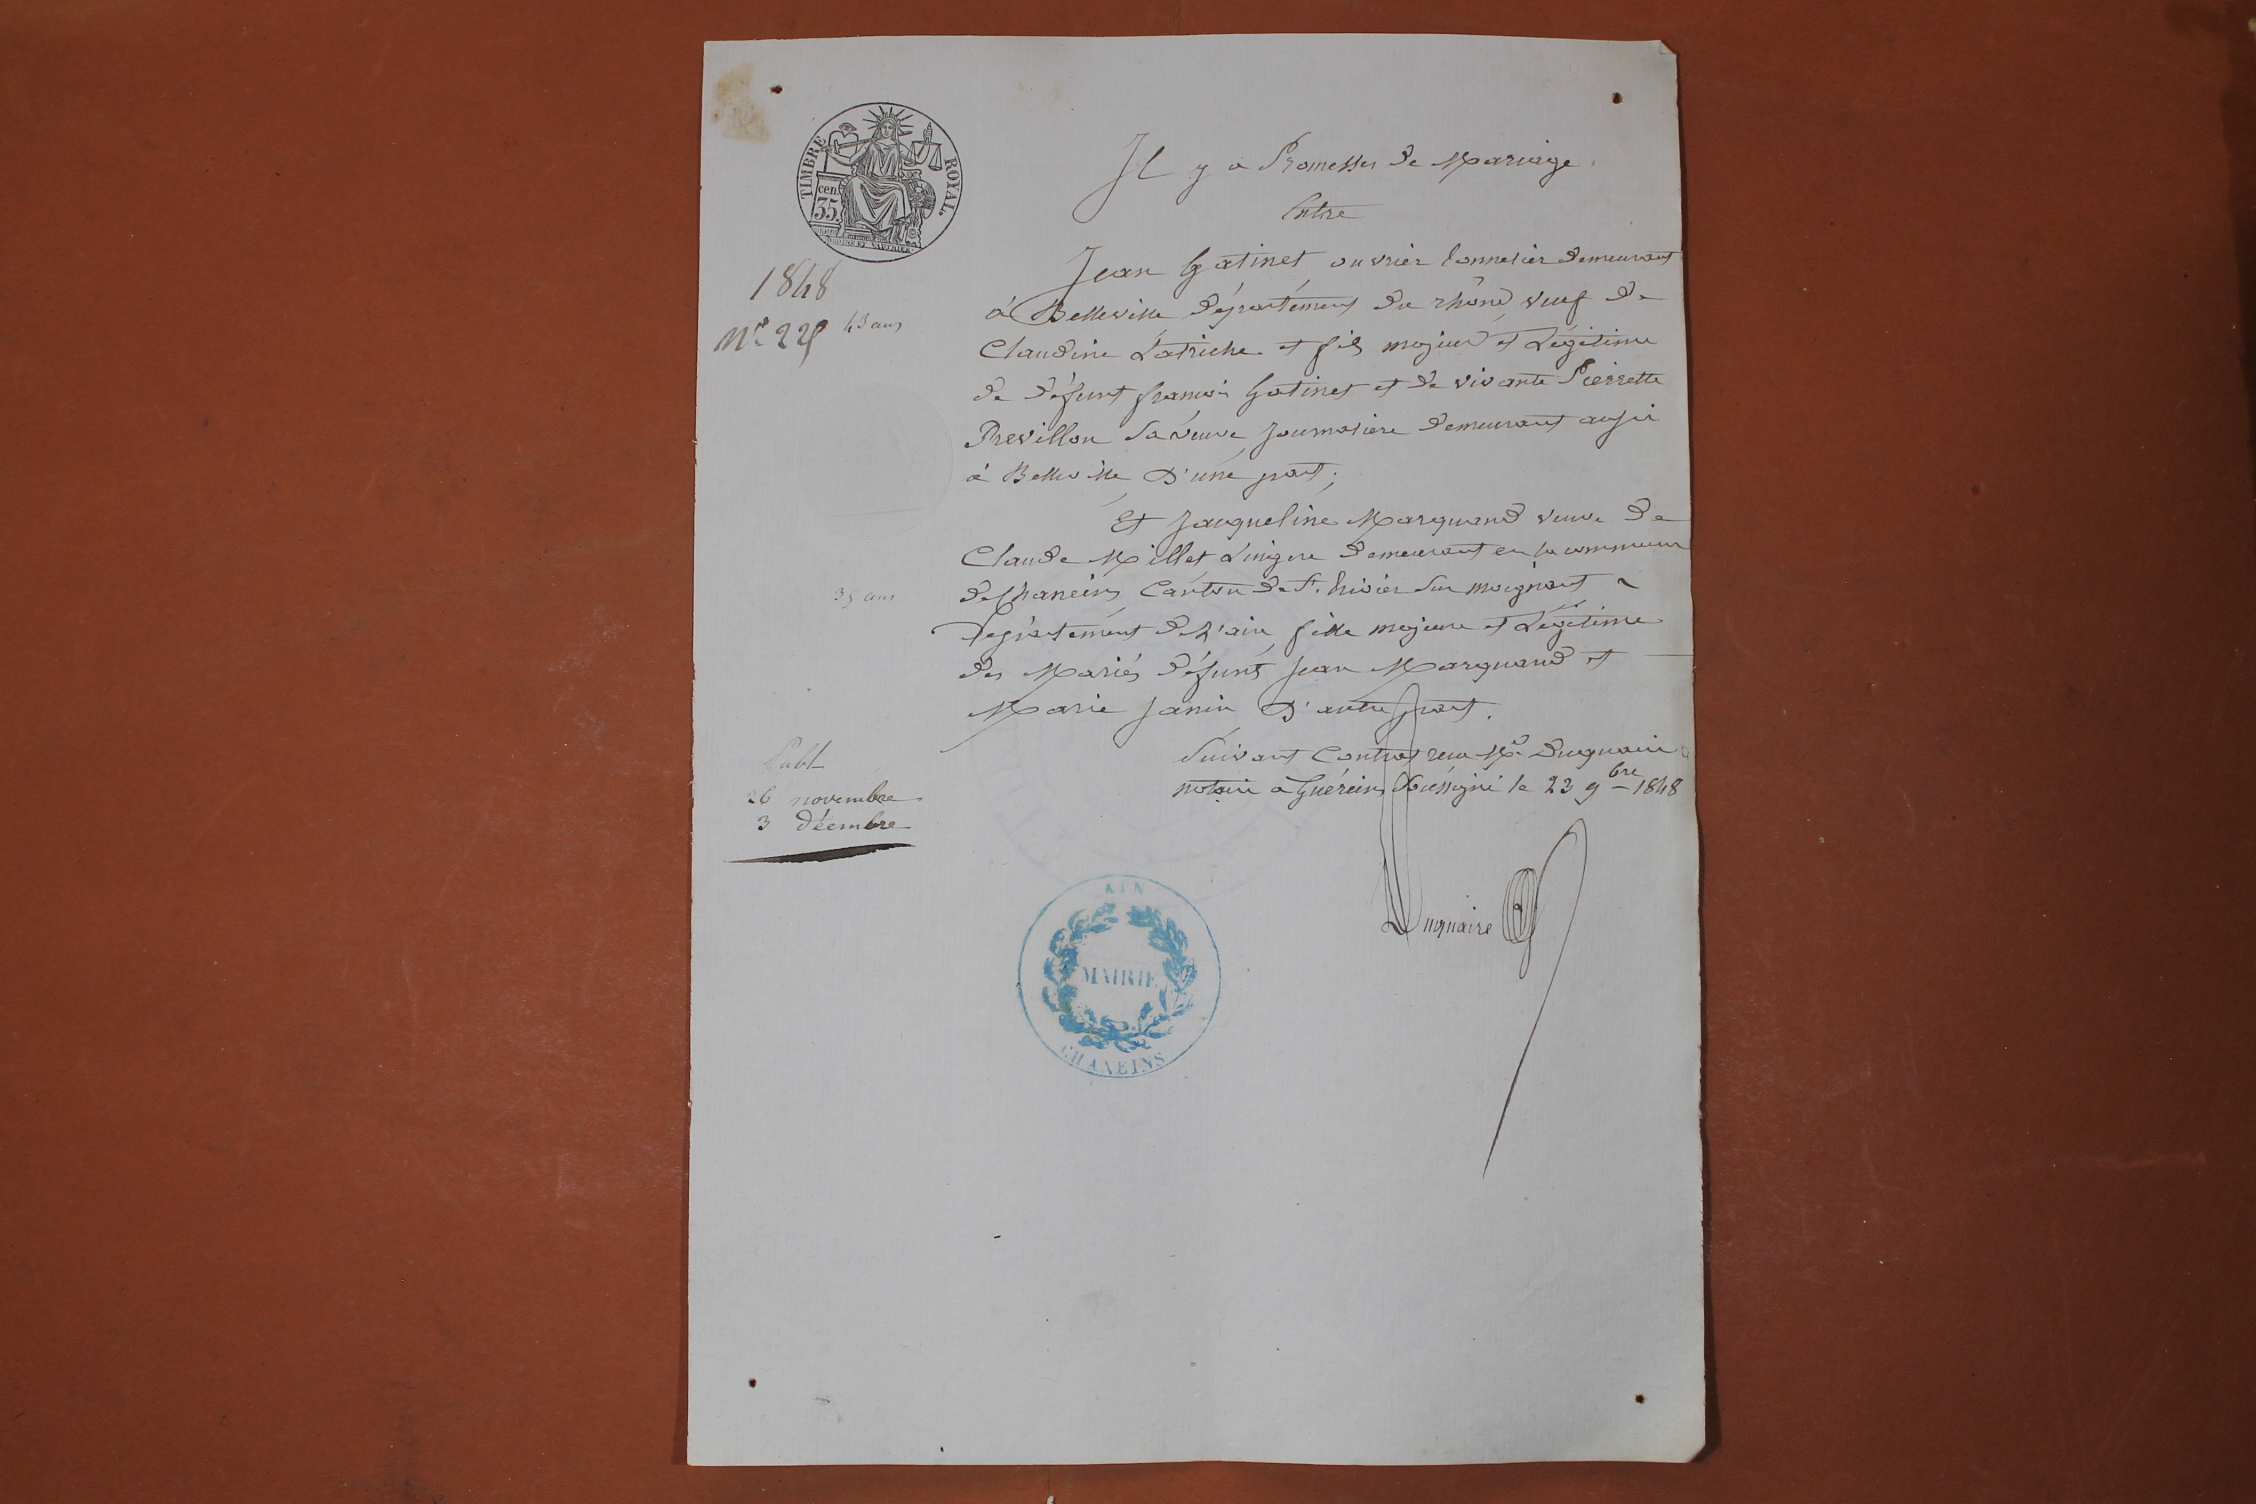 TIMBRE ROYAL.
cen.
35.
Il y a Promesses de Mariage
Entre
Jean Gatinet ouvrier tonnelier demeurant
à Belleville département du rhône, veuf de
Claudine Latriche et fils majeur et Légitime
de défunt françois Gatinet et de vivante Pierrette
Previllon sa veuve journalière demeurant aussi
à Belleville D'une part;
Et Jacqueline Marquand veuve de
Claude Millet Lingere demeurant en la commune
de Chaneins Canton de St. trivier Sur moignans
département de L'ain, fille majeure et Légitime
des Mariés défunts Jean Marquand et
Marie Janin D'autre part.
Suivant Contrat reçu Me. Duquaire
notaire à Guéreins Soussigné le 23 9bre 1848
Duquaire
1848
43 ans
35 ans
Publ
26 novembre
3 décembre
AIN
MAIRIE
CHANEINS